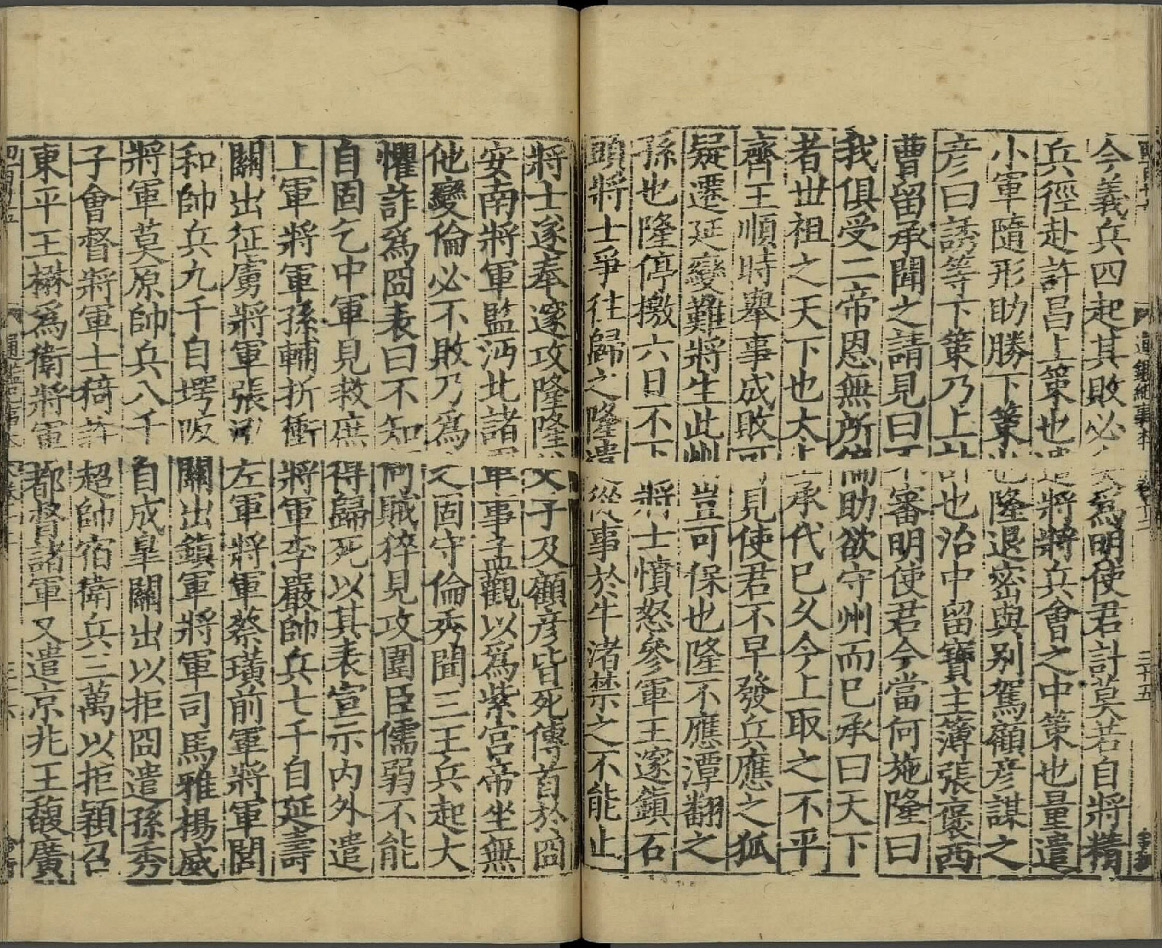 今義兵四起其敗必矣爲明使君計莫若自將精
兵徑赴許昌上策也遣將將兵會之中策也量遣
小軍隨形助勝下策也隆退密與別駕顧彥謀之
彥曰誘等下策乃上計也治中留寶主薄張褒西
曹留承聞之請見曰不審明使君今當何施隆曰
我俱受二帝恩無所偏助欲守州而已承曰天下
者世祖之天下也太上承代已久今上取之不平
齊王順時舉事成敗可見使君不早發兵應之狐
疑遷延變難將生此州豈可保也隆不應潭翻之
孫也隆停檄六日不下將士憤怒參軍王邃鎮石
頭將士爭往歸之隆遣從事於牛渚禁之不能止
將士遂奉邃攻隆隆父子及顧彥皆死傳首於冏
安南將軍監沔北諸軍事孟觀以爲紫宮帝坐無
他變倫必不敗乃爲之固守倫秀聞三王兵起大
懼詐爲冏表曰不知何賊猝見攻圍臣儒弱不能
自固乞中軍見救庶得歸死以其表宣示內外遣
上軍將軍孫輔折衝將軍李嚴帥兵七千自延壽
關出征虜將軍張泓左軍將軍蔡璜前軍將軍閭
和帥兵九千自堮阪關出鎮軍將軍司馬雅楊威
將軍莫原帥兵八千自成皐關出以拒冏遣孫秀
子會督將軍士猗許超帥宿衛兵三萬以拒穎召
東平王楙爲衛將軍都督諸軍又遣京兆王馥廣